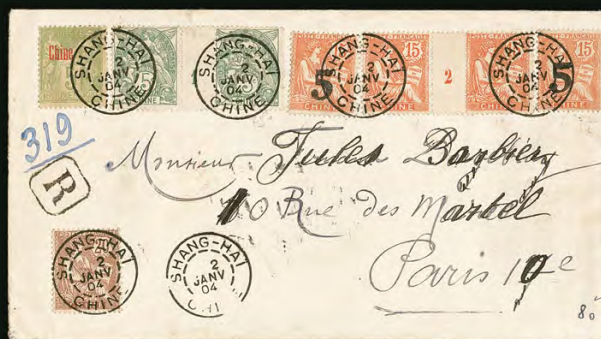 Chine
5
15
15
2
5
SHANG-HAI
2
JANV
04
CHINE
SHANG-HAI
2
JANV
04
CHINE
SHANG-HAI
2
JANV
04
CHINE
SHANG-HAI
2
JANV
04
CHINE
319
R
Monsieur Jules Barbier
10 Rue des Martel
Paris 10e
SHANG-HAI
2
JANV
04
CHINE
SHANG-HAI
2
JANV
04
CHI
80